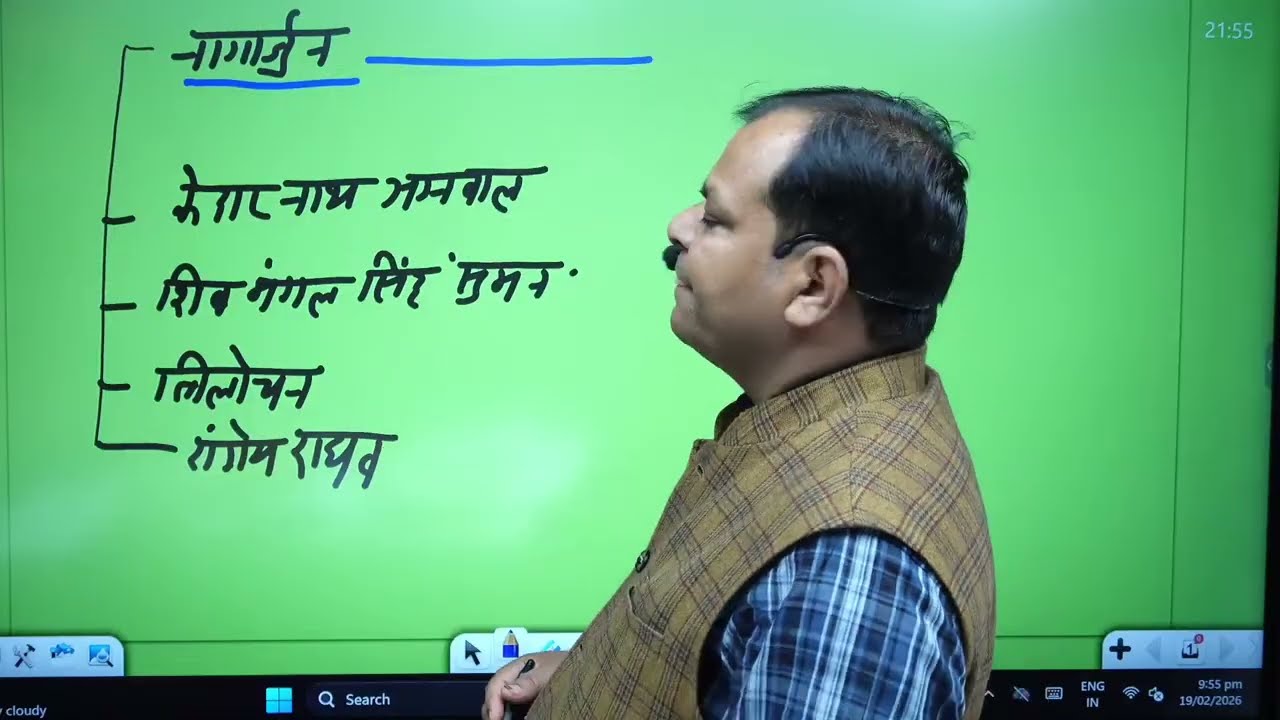 21:55
नागार्जुन
केदारनाथ अग्रवाल
शिव मंगल सिंह 'सुमन'
त्रिलोचन
रांगेय राघव
1
6
y cloudy
Search
ENG
IN
9:55 pm
19/02/2026